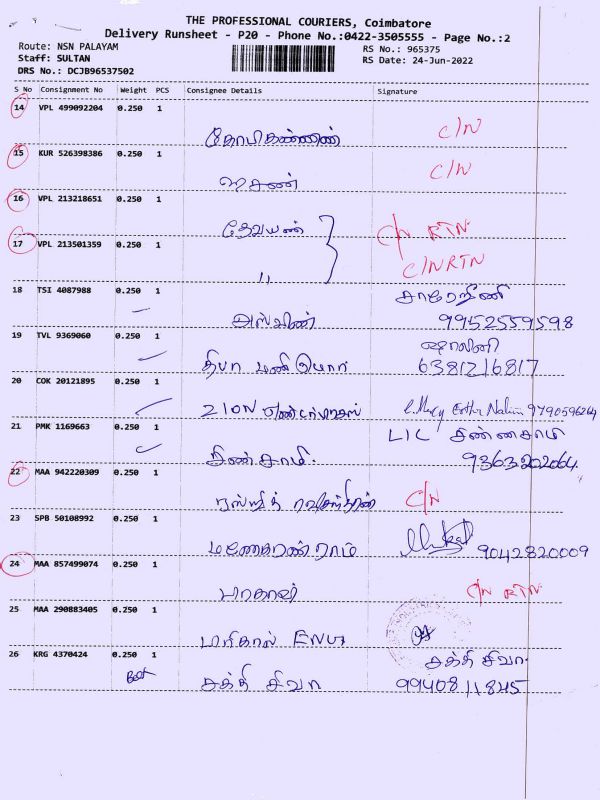 THE PROFESSIONAL COURIERS, Coimbatore
Delivery Runsheet - P20 - Phone No.:0422-3505555 - Page No.:2
Route: NSN PALAYAM RS No.: 965375
Staff: SULTAN RS Date: 24-Jun-2022
DRS No.: DCJB96537502
S No Consignment No Weight PCS Consignee Details Signature
14 VPL 499092204 0.250 1
கோபிகண்ணன் C/N
15 KUR 526398386 0.250 1
C/N
16 VPL 213218651 0.250 1
தேவயன் C/N RTN
17 VPL 213501359 0.250 1
" C/N RTN
18 TSI 4087988 0.250 1
அஸ்வின் 9952559598
19 TVL 9369060 0.250 1 ஷாலினி
தீபா 6381216817
20 COK 20121895 0.250 1
ZION 9790596264
21 PMK 1169663 0.250 1 LIC சின்னசாமி
சின்சாமி. 9363202064
22 MAA 942220309 0.250 1
C/N
23 SPB 50108992 0.250 1
ராம் 9042820009
24 MAA 857499074 0.250 1
C/N RTN
25 MAA 290883405 0.250 1
26 KRG 4370424 0.250 1 சக்தி சிவா
சக்தி சிவா 9940811845